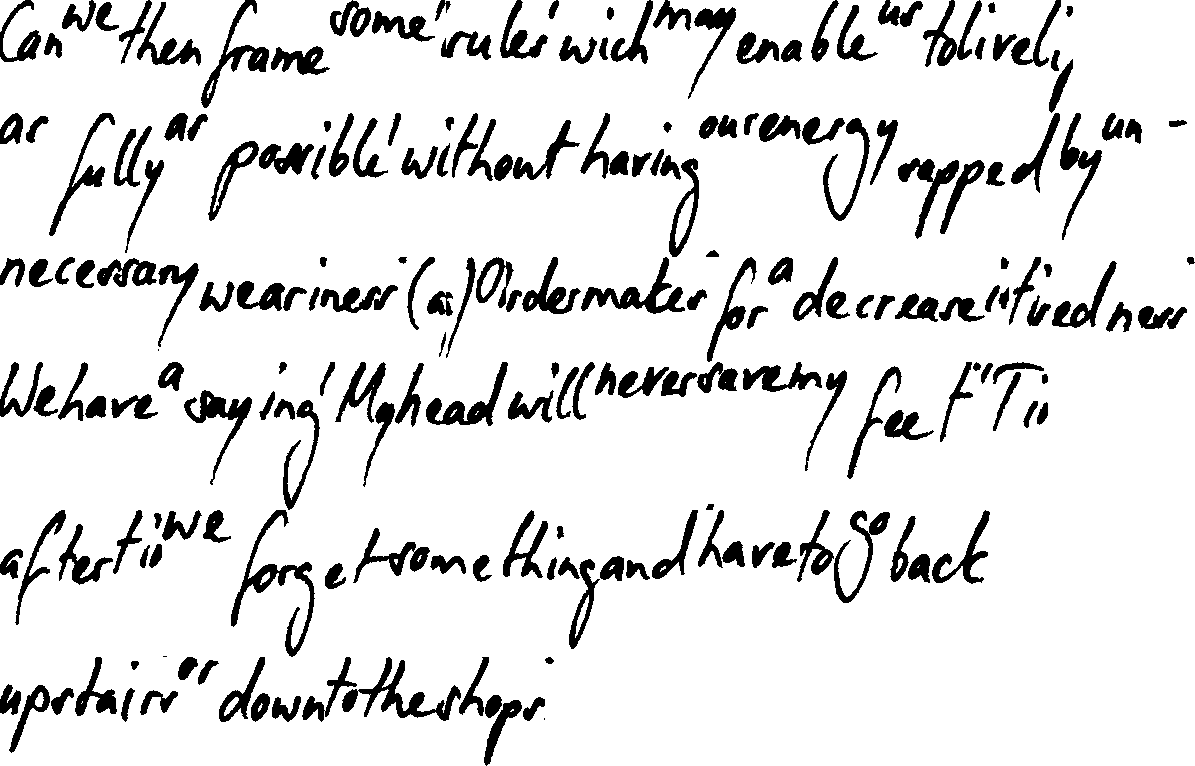 Can we then frame some rules wich may enable us to live
as fully as possible without having our energy sapped by un-
necessary weariness (as) Ordermaker for a decrease tiredness
We have a saying "My head will never save my feet" Ti
after Ti we forget something and have to go back
upstairs or down to the shops